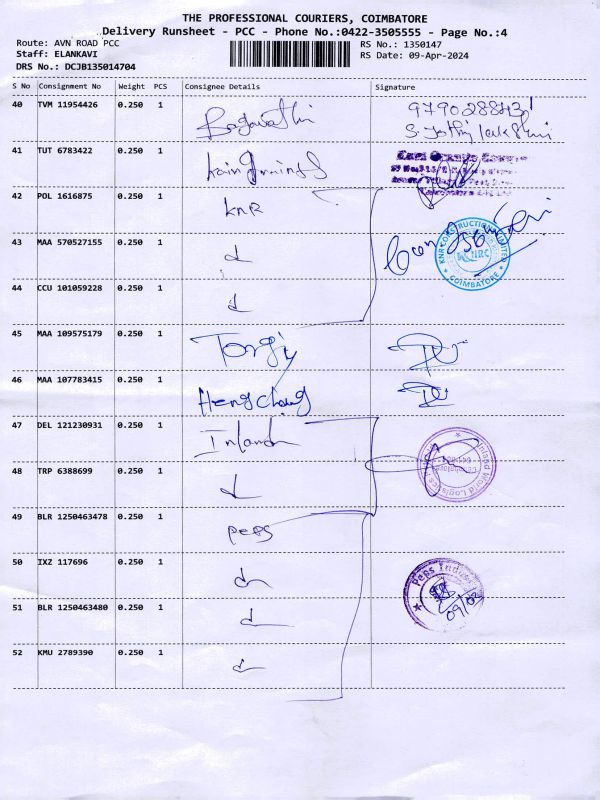 THE PROFESSIONAL COURIERS, COIMBATORE
Delivery Runsheet - PCC - Phone No.:0422-3505555 - Page No.:4
Route: AVN ROAD PCC
Staff: ELANKAVI
DRS No.: DCJB135014704
RS No.: 1350147
RS Date: 09-Apr-2024
S No Consignment No Weight PCS Consignee Details Signature
40 TVM 11954426 0.250 1
41 TUT 6783422 0.250 1
42 POL 1616875 0.250 1 KNR
43 MAA 570527155 0.250 1
KNR CONSTRUCTIONS LIMITED
COIMBATORE
44 CCU 101059228 0.250 1
45 MAA 109575179 0.250 1
46 MAA 107783415 0.250 1 Hengchang
47 DEL 121230931 0.250 1 Inland
Inland World Logistics
48 TRP 6388699 0.250 1
49 BLR 1250463478 0.250 1 peps
50 IXZ 117696 0.250 1
Peps Industries
51 BLR 1250463480 0.250 1
52 KMU 2789390 0.250 1